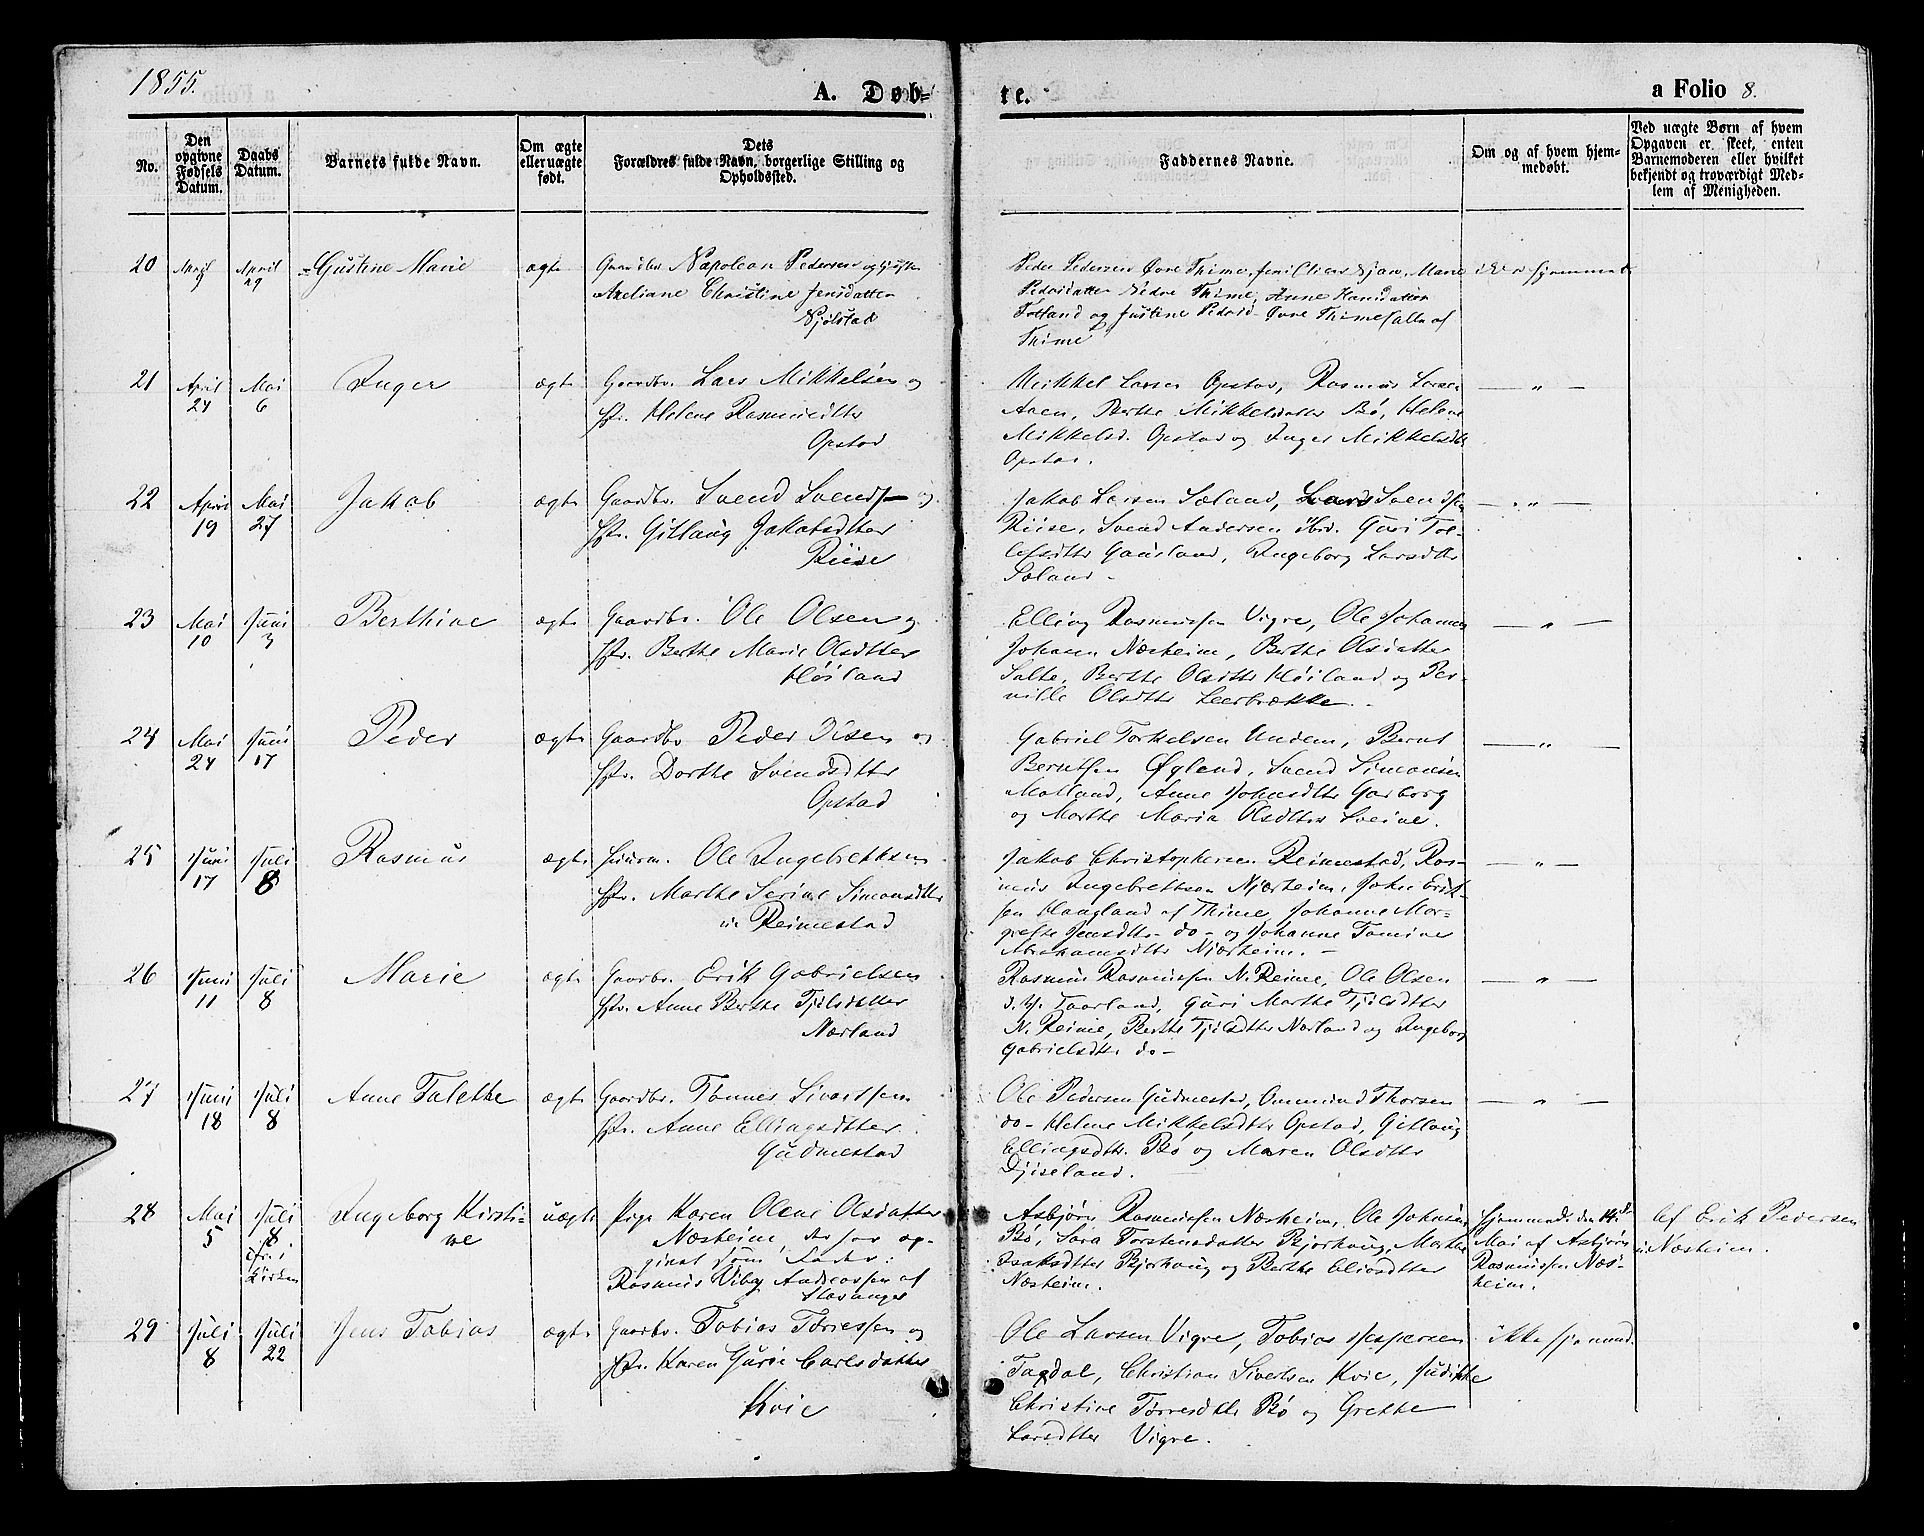 1855.
A. Døb-
te.
a Folio 8.
No.
Den opgivne Fødsels Datum.
Daabs Datum.
Barnets fulde Navn.
Om ægte eller uægte født.
Dets Forældres fulde Navn, borgerlige Stilling og Opholdssted.
Faddernes Navne.
Om og af hvem hjemmedøbt.
Ved uægte Børn af hvem Opgaven er skeet, enten Barnemoderen eller hvilket bekjendt og troværdigt Medlem af Menigheden.
20 April 9 April 29 Gustine Marie ægte
Gaardbr. Napoleon Pedersen og Hustru
Axeliane Christine Jensdatter
Njølstad
Peder Pedersen Øvre Thime, Marie ikke hjemmed.
Pedersdatter Nedre Thime, Anne Hansdatter
Totland og Justine Pedersd. Øvre Thime alle af
Thime
21 April 24 Mai 6 Inger ægte
Gaardbr. Lars Mikkelsen og
Hstr. Helene Rasmusdtter
Opstad
Mikkel Larsen Opstad, Rasmus Larsen
Aaen, Berthe Mikkelsdatter Bø, Helene
Mikkelsd. Opstad og Inger Mikkelsdtr
Opstad.
— " —
22 April 19 Mai 27 Jakob ægte
Gaardbr. Svend Svends. og
Hstr. Gitlaug Jakobsdtter
Riise
Jakob Larsen Søland, Lars Svendsen
Riise, Svend Andersen ibid. Guri Tol-
lefsdtter Gausland, Ingeborg Larsdtter
Søland -
— " —
23 Mai 10 Juni 3 Berthine ægte
Gaardbr. Ole Olsen og
Hstr. Berthe Marie Olsdtter
Høiland
Elling Rasmussen Vigre, Ole Johannes
Johansen Næsheim, Berthe Olsdatter
Salte, Berthe Olsdtter Høiland og Per-
nille Olsdtter Leerbrække.
— " —
24 Mai 24 Juni 17 Peder ægte
Gaardbr Peder Olsen og
Hstr. Dorthe Svendsdtter
Opstad
Gabriel Torkelsen Undem, Bernt
Berntsen Øglend, Svend Simonsen
Motland, Anne Johnsdtter Garborg
og Marthe Maria Olsdtter Sveine.
— " —
25 Juni 17 Juli 8 Rasmus ægte
Huusm. Ole Ingebretsen
Hstr. Marthe Serine Simonsdtter
u. Reimestad
Jakob Christophersen Reimestad, Ras-
mus Ingebrettsen Njærheim, John Erik-
sen Haagland af Thime, Johanne Mar-
grethe Jensdtter do- og Johanne Tomine
Abrahamsdtter Njærheim. -
— " —
26 Juni 11 Juli 8 Marie ægte
Gaardbr. Erik Gabrielsen
Hstr. Anne Berthe Tjølsdatter
Nærland
Rasmus Rasmussen N. Reime, Ole Olsen
d. y. Taarland, Guri Marthe Tjølsdtter
N. Reime, Berthe Tjølsdtter Nærland og Ingeborg
Gabrielsdtter do -
— " —
27 Juni 18 Juli 8 Anne Talette ægte
Gaardbr. Tønnes Sivertsen
Hstr. Anne Ellingsdtter
Gudmestad
Ole Pedersen Gudmestad, Ommund Thorsen
do- Helene Mikkelsdtter Opstad, Gitlaug
Ellingsdtter Bø og Maren Olsdtter
Djiseland.
— " —
28 Mai 5 Juli 8. fr. i Kirken Ingeborg Kirsti-
ne uægte
Pige Karen Olene Olsdatter
Næsheim, der har op-
givet som Fader:
Rasmus Viby Andreassen af
Stavanger
Asbjørn Rasmussen Næsheim, Ole Johnsen
Bø, Sara Torstensdatter Bjorhaug, Marthe
Isaksdtter Bjorhaug og Berthe Eliasdtter
Næsheim.
Hjemmed. den 14de
Mai af Asbjørn
Rasmussen Næs-
heim.
Af Erik Pedersen
Næsheim.
29 Juli 8 Juli 22 Jens Tobias ægte
Gaardbr. Tobias Tørresen og
Hstr. Karen Gurie Carlsdatter
Kvie
Ole Larsen Vigre, Tobias Jespersen
Tagdal, Christian Sivertsen Kvie, Judithe
Christine Tørresdtr Bø og Grethe
Larsdtter Vigre.
ikke hjemmd.